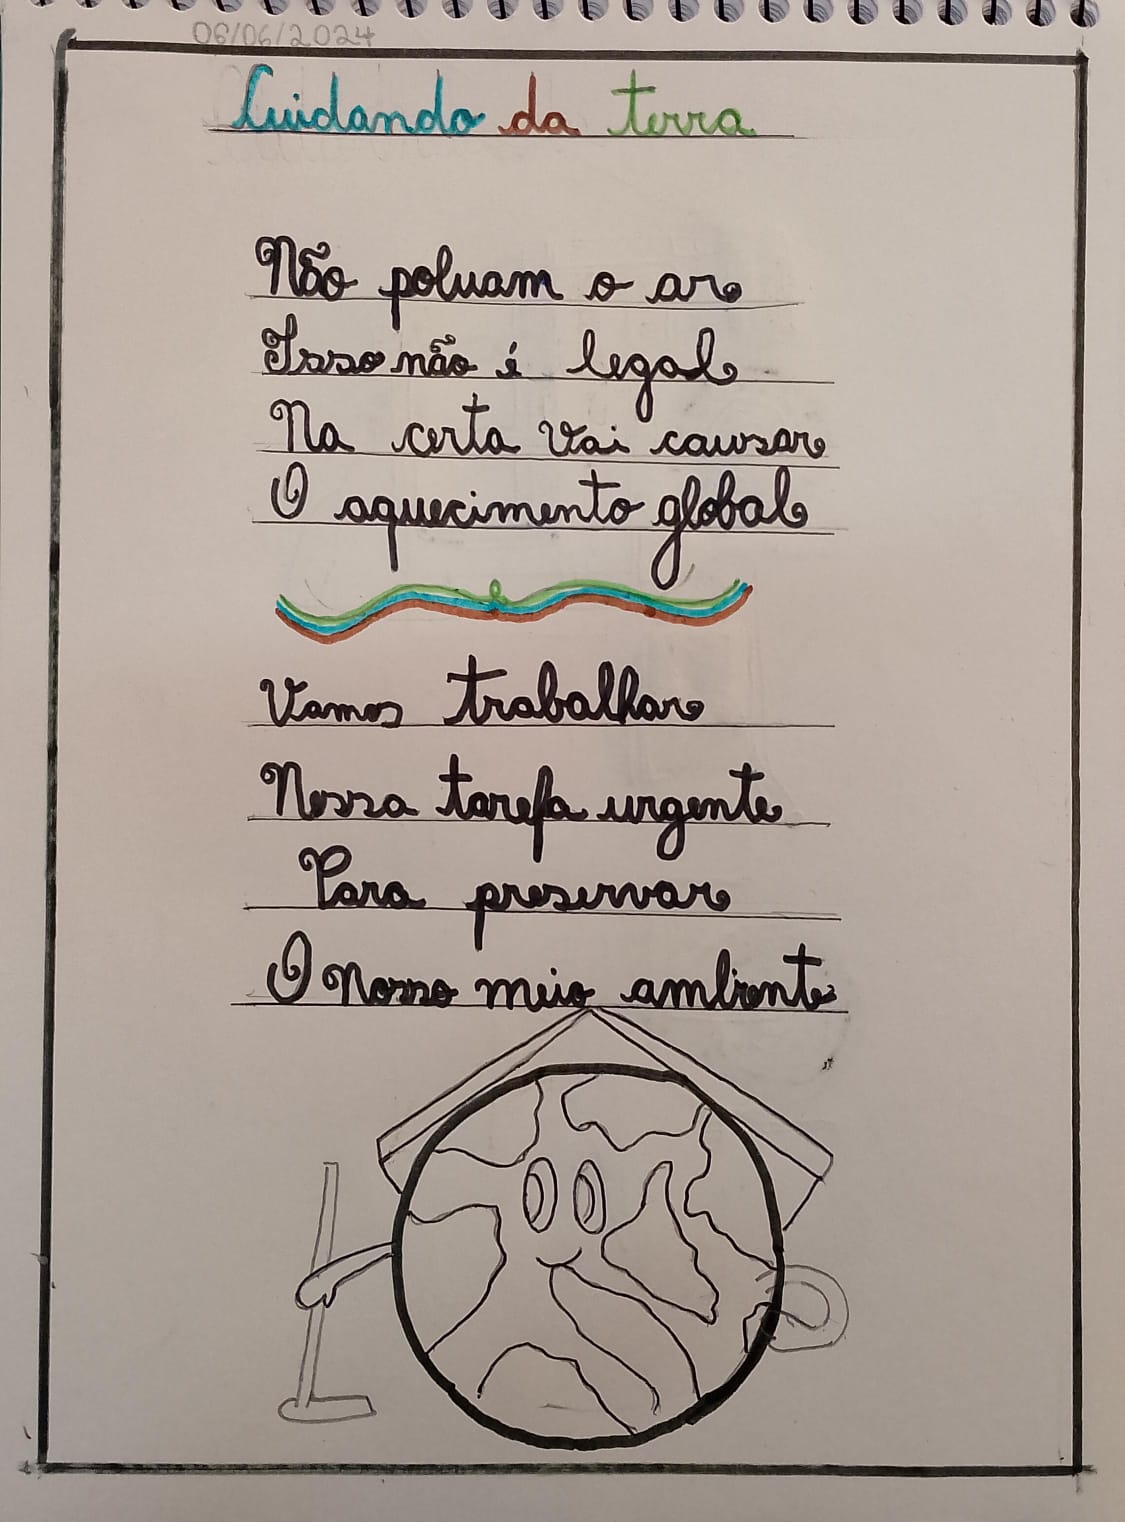 06/06/2024
Cuidando da terra
Não poluam o ar
Isso não é legal
Na certa vai causar
O aquecimento global
Vamos trabalhar
Nossa tarefa urgente
Para preservar
O nosso meio ambiente